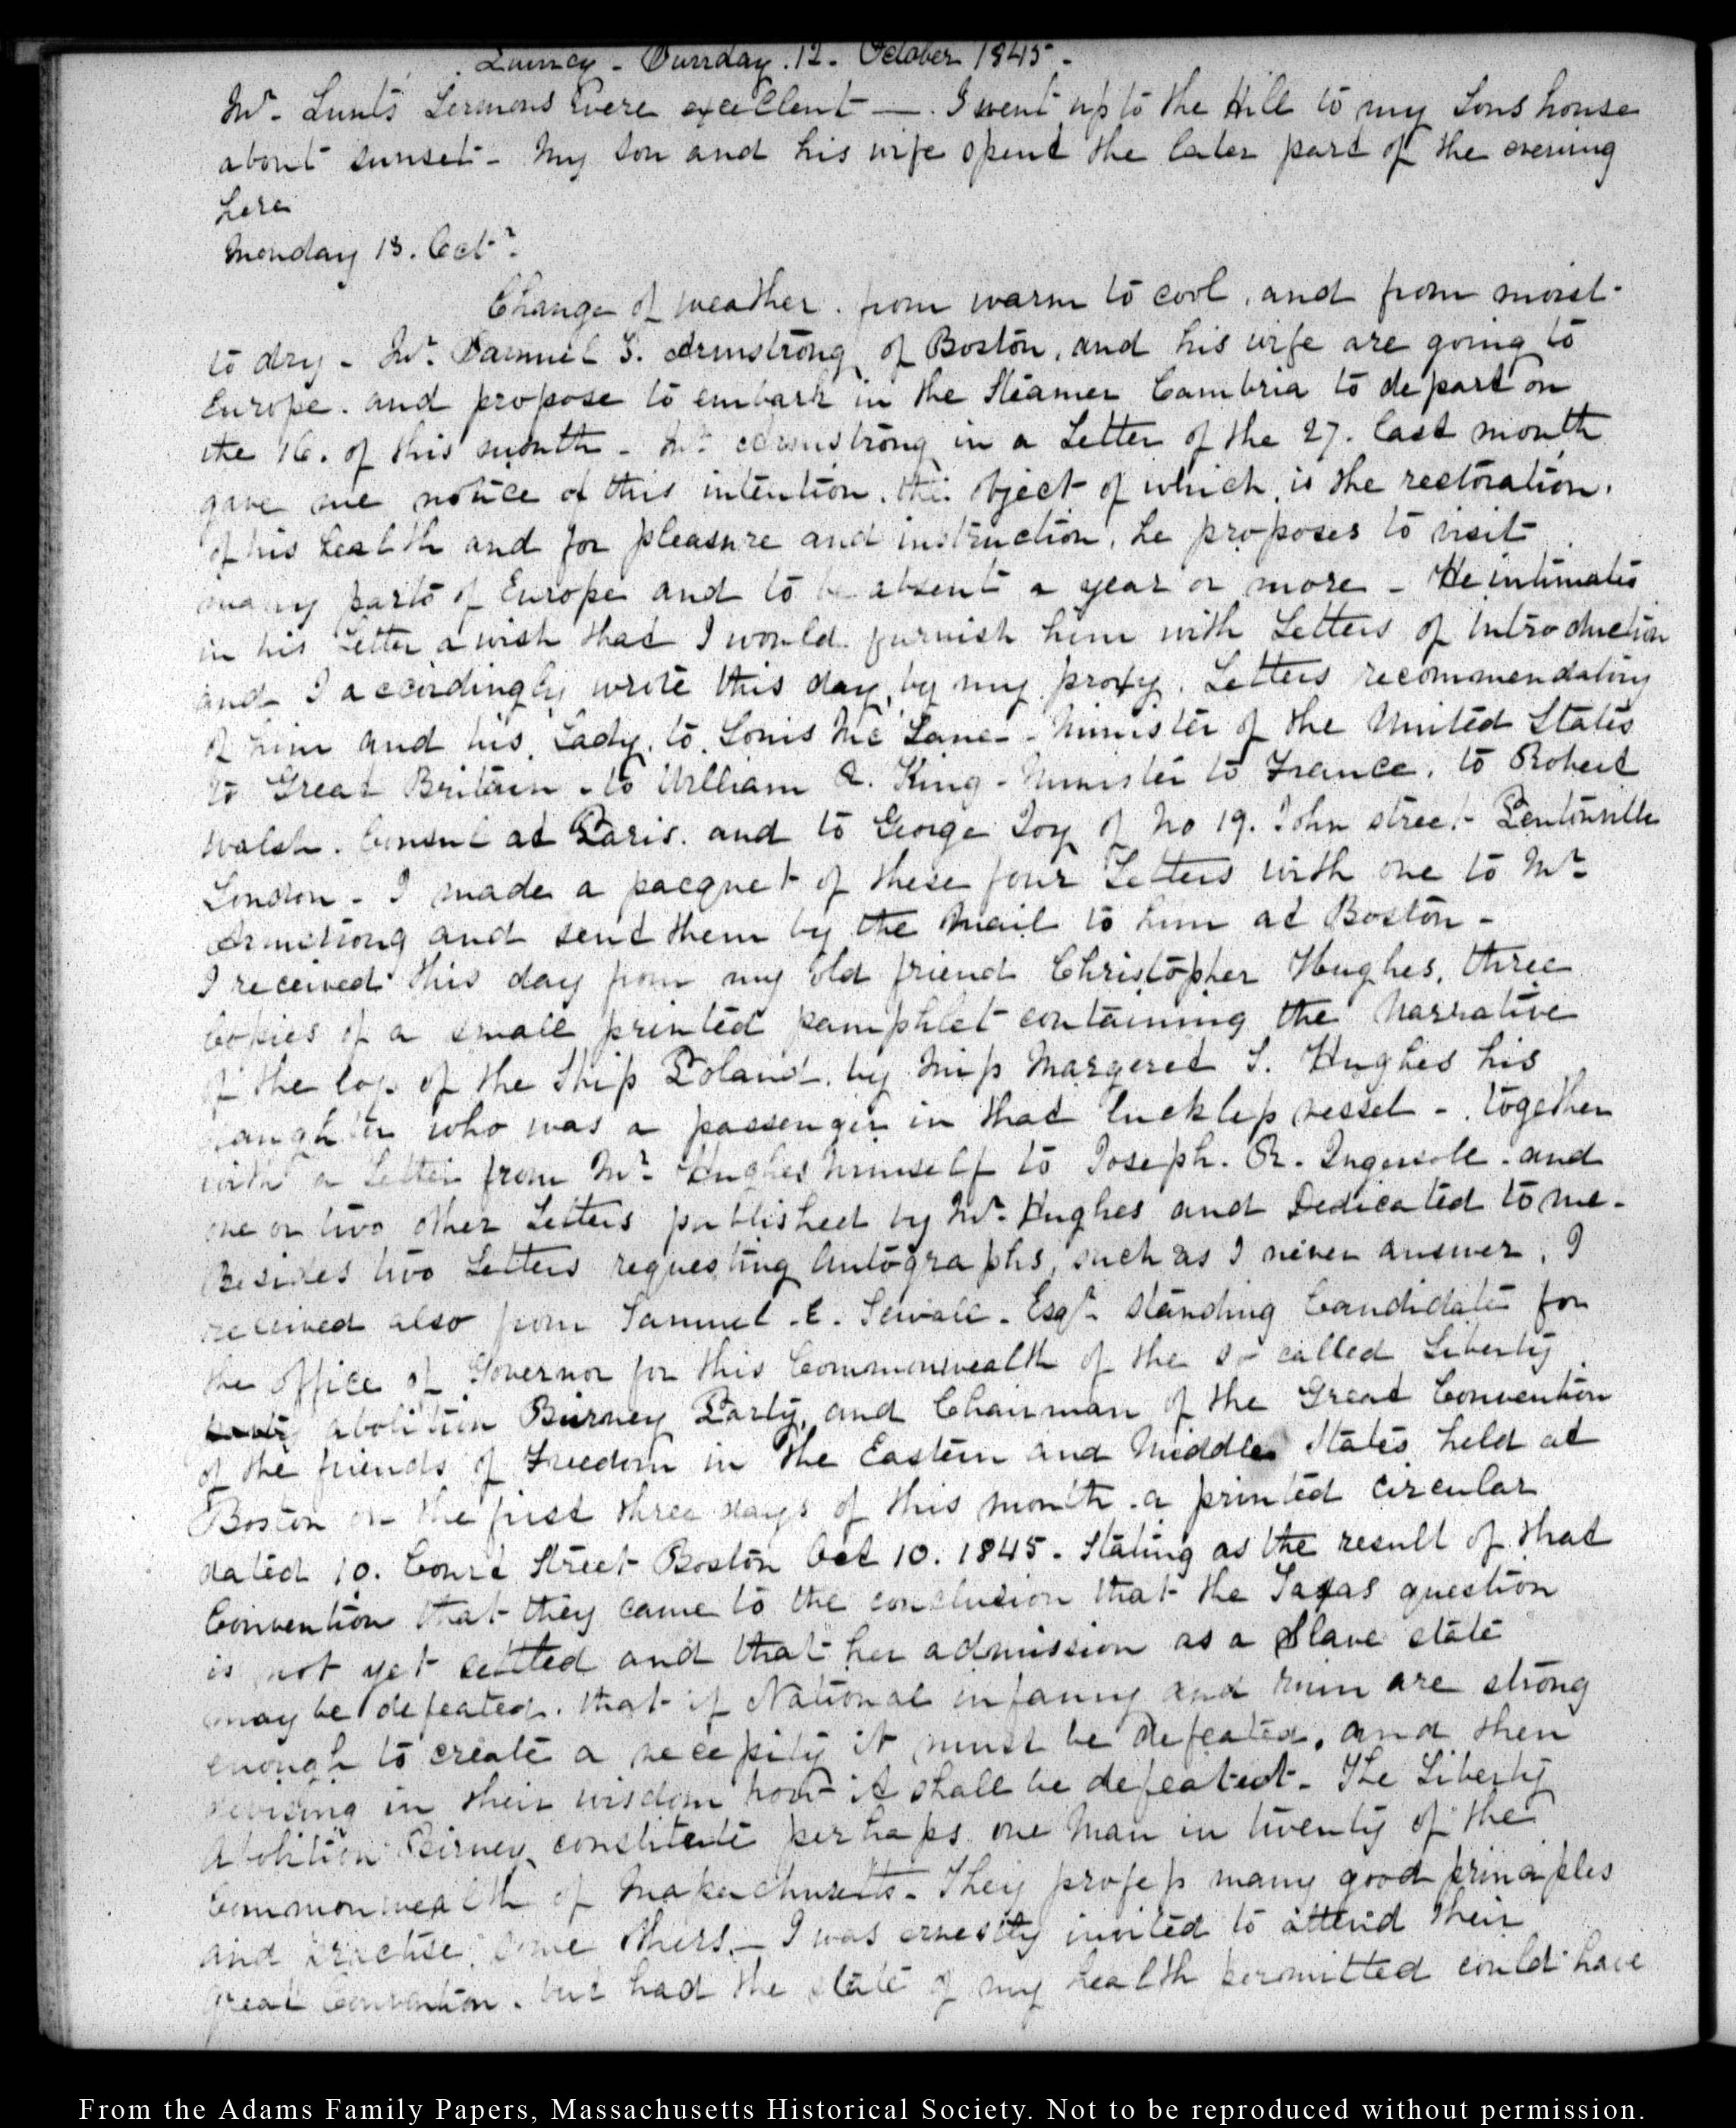 Quincy - Sunday. 12. October 1845 -
Mr. Lunt's Sermons were excellent — . I went up to the Hill to my Sons house
about sunset - My son and his wife spent the later part of the evening
here
Monday 13. Octr.
Change of weather . from warm to cool , and from moist
to dry - Mr. Samuel T. Armstrong of Boston, and his wife are going to
Europe . and propose to embark in the Steamer Cambria to depart on
the 16. of this month - Mr. Armstrong in a Letter of the 27. last month
gave me notice of this intention . the object of which , is the restoration .
of his health and for pleasure and instruction , he proposes to visit
many parts of Europe and to be absent a year or more - He intimates
in his Letter a wish that I would furnish him with Letters of Introduction
and I accordingly wrote this day, by my proxy . Letters recommendatory
of him and his Lady . to Louis Mc Lane - Minister of the United States
to Great Britain - to William R. King - Minister to France . to Robert
Walsh . Consul at Paris . and to George Joy of No 19. John street Pentonville
London - I made a pacquet of these four Letters with one to Mr.
Armstrong and sent them by the Mail to him at Boston -
I received this day from my old friend Christopher Hughes, three
Copies of a small printed pamphlet containing the Narrative
of the loss of the Ship Poland . by Miss Margeret S. Hughes his
daughter who was a passenger in that luckless vessel - together
with a Letter from Mr. Hughes himself to Joseph . R. Ingersoll . and
one or two other Letters published by Mr. Hughes and Dedicated to me -
Besides two Letters requesting Autographs , such as I never answer . I
received also from Samuel . E . Sewall . Esqr. standing Candidate for
the office of Governor for this Commonwealth of the so called Liberty
abolition Birney Party, and Chairman of the Great Convention
of the friends of Freedom in the Eastern and Middle States held at
Boston on the first three days of this month . a printed circular
dated 10. Court Street Boston Oct 10. 1845 - Stating as the result of that
Convention that they came to the conclusion that the Taxas question
is not yet settled and that her admission as a Slave state
may be defeated . that if National infamy and ruin are strong
enough to create a necessity it must be defeated, and then
devising in their wisdom how it shall be defeated - The Liberty
Abolition Birney constitute perhaps one Man in twenty of the
Commonwealth of Massachusetts - They profess many good principles
and practise some others. - I was ernestly invited to attend their
great Convention . but had the state of my health permitted could have
From the Adams Family Papers, Massachusetts Historical Society. Not to be reproduced without permission.